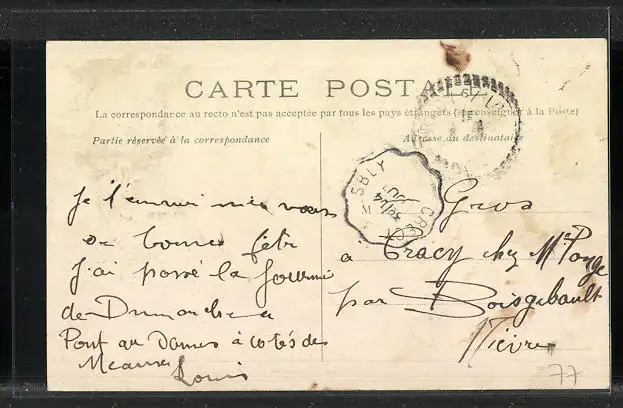 CARTE POSTALE
La correspondance au recto n'est pas acceptée par tous les pays étrangers (se renseigner à la Poste)
Partie réservée à la correspondance
Adresse du destinataire
Je t'envoie mes vœux
de bonne fête
J'ai passé la journée
de Dimanche a
Pont au Dames à cotés de
Meaux
Louis
Gros
a Tracy chez Mr Ponge
par Boisgibault
Nièvre
77